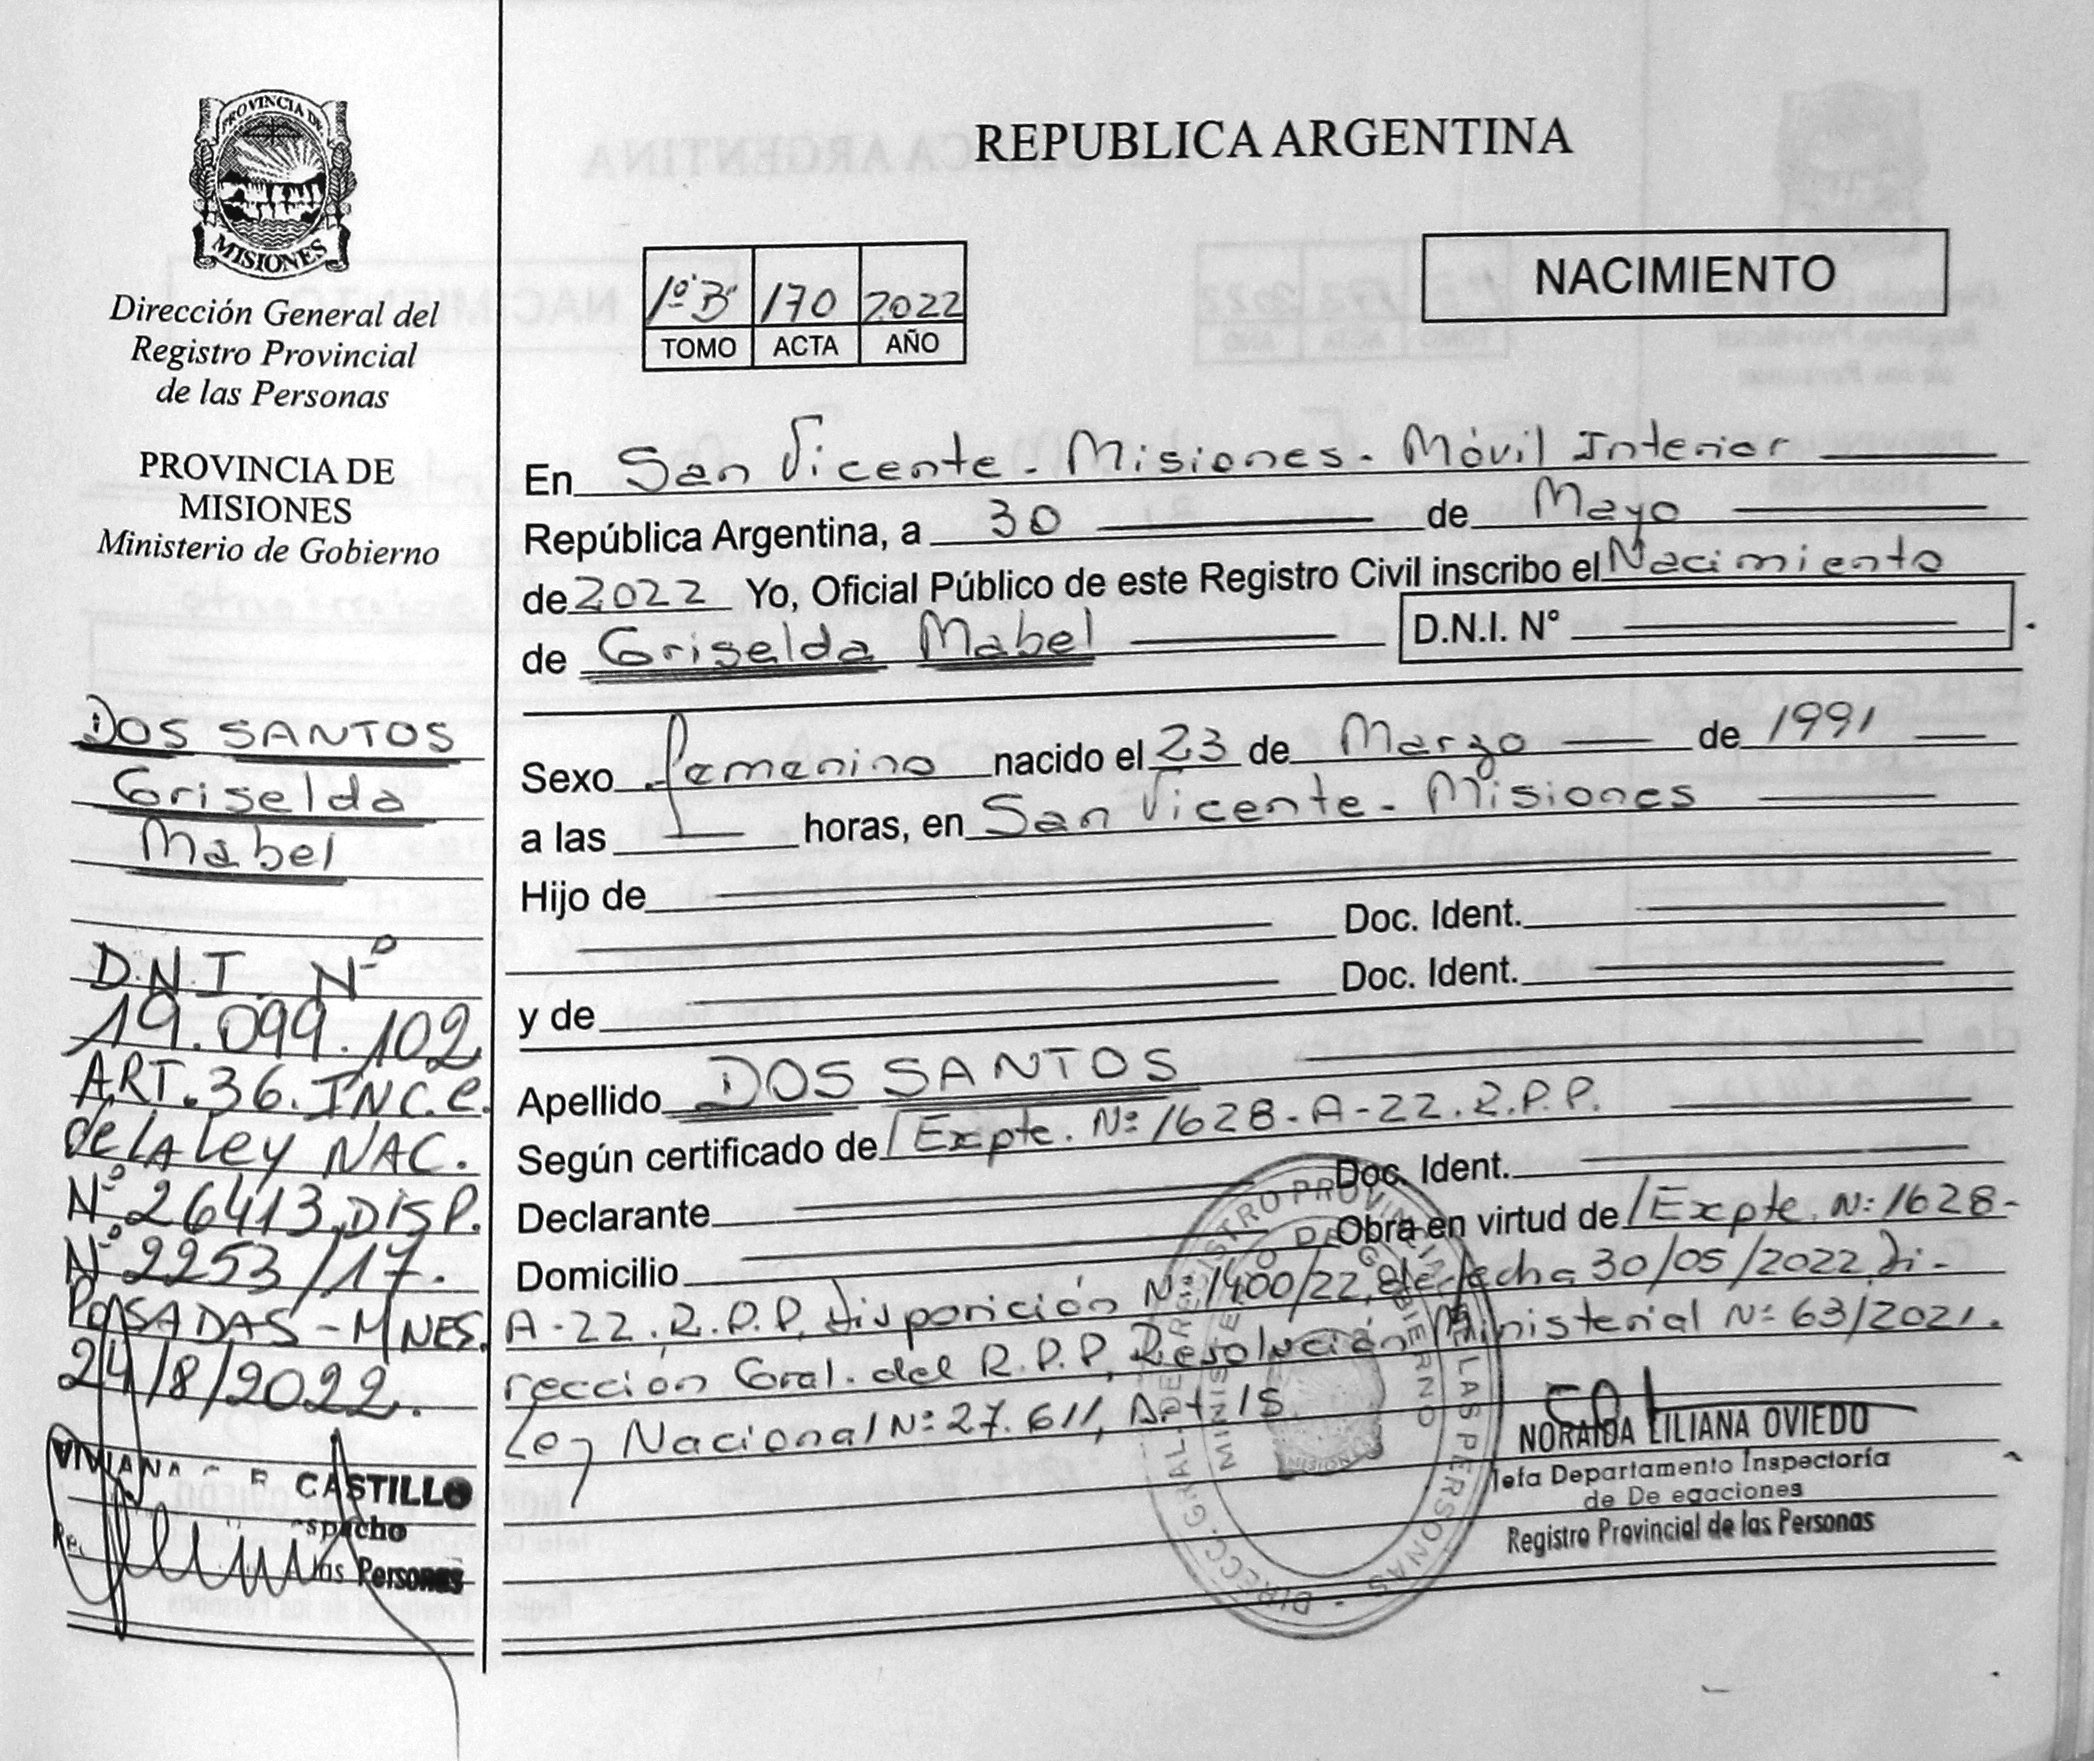 PROVINCIA DE
MISIONES
Dirección General del
Registro Provincial
de las Personas
PROVINCIA DE
MISIONES
Ministerio de Gobierno
DOS SANTOS
Griselda
Mabel
D.N.I. Nº
19.099.102
ART.36.INC.C.
de LA Ley NAC.
Nº 26413, DISP.
Nº 2253/17.
POSADAS - MNES.
24/8/2022.
VIVIANA CASTILLO
las Personas
REPUBLICA ARGENTINA
NACIMIENTO
1º"B" 170 2022
TOMO ACTA AÑO
En San Vicente - Misiones - Móvil Interior
República Argentina, a 30 de Mayo
de 2022 Yo, Oficial Público de este Registro Civil inscribo el Nacimiento
de Griselda Mabel D.N.I. N°
Sexo femenino nacido el 23 de Marzo de 1991
a las horas, en San Vicente - Misiones
Hijo de
Doc. Ident.
Doc. Ident.
y de
Apellido DOS SANTOS
Según certificado de Expte. Nº 1628-A-22.R.P.P.
Declarante Doc. Ident.
Domicilio Obra en virtud de Expte. Nº 1628-
A-22.R.P.P, Disposición Nº 1400/22, de fecha 30/05/2022, Di-
rección Gral. del R.P.P, Resolución Ministerial Nº 63/2021.
Ley Nacional Nº 27.611, Art. 15
DIRECC. GRAL. DE REGISTRO PROVINCIAL DE LAS PERSONAS
MINISTERIO DE GOBIERNO
MISIONES
NORAIDA LILIANA OVIEDO
Jefa Departamento Inspectoría
de De egaciones
Registro Provincial de las Personas